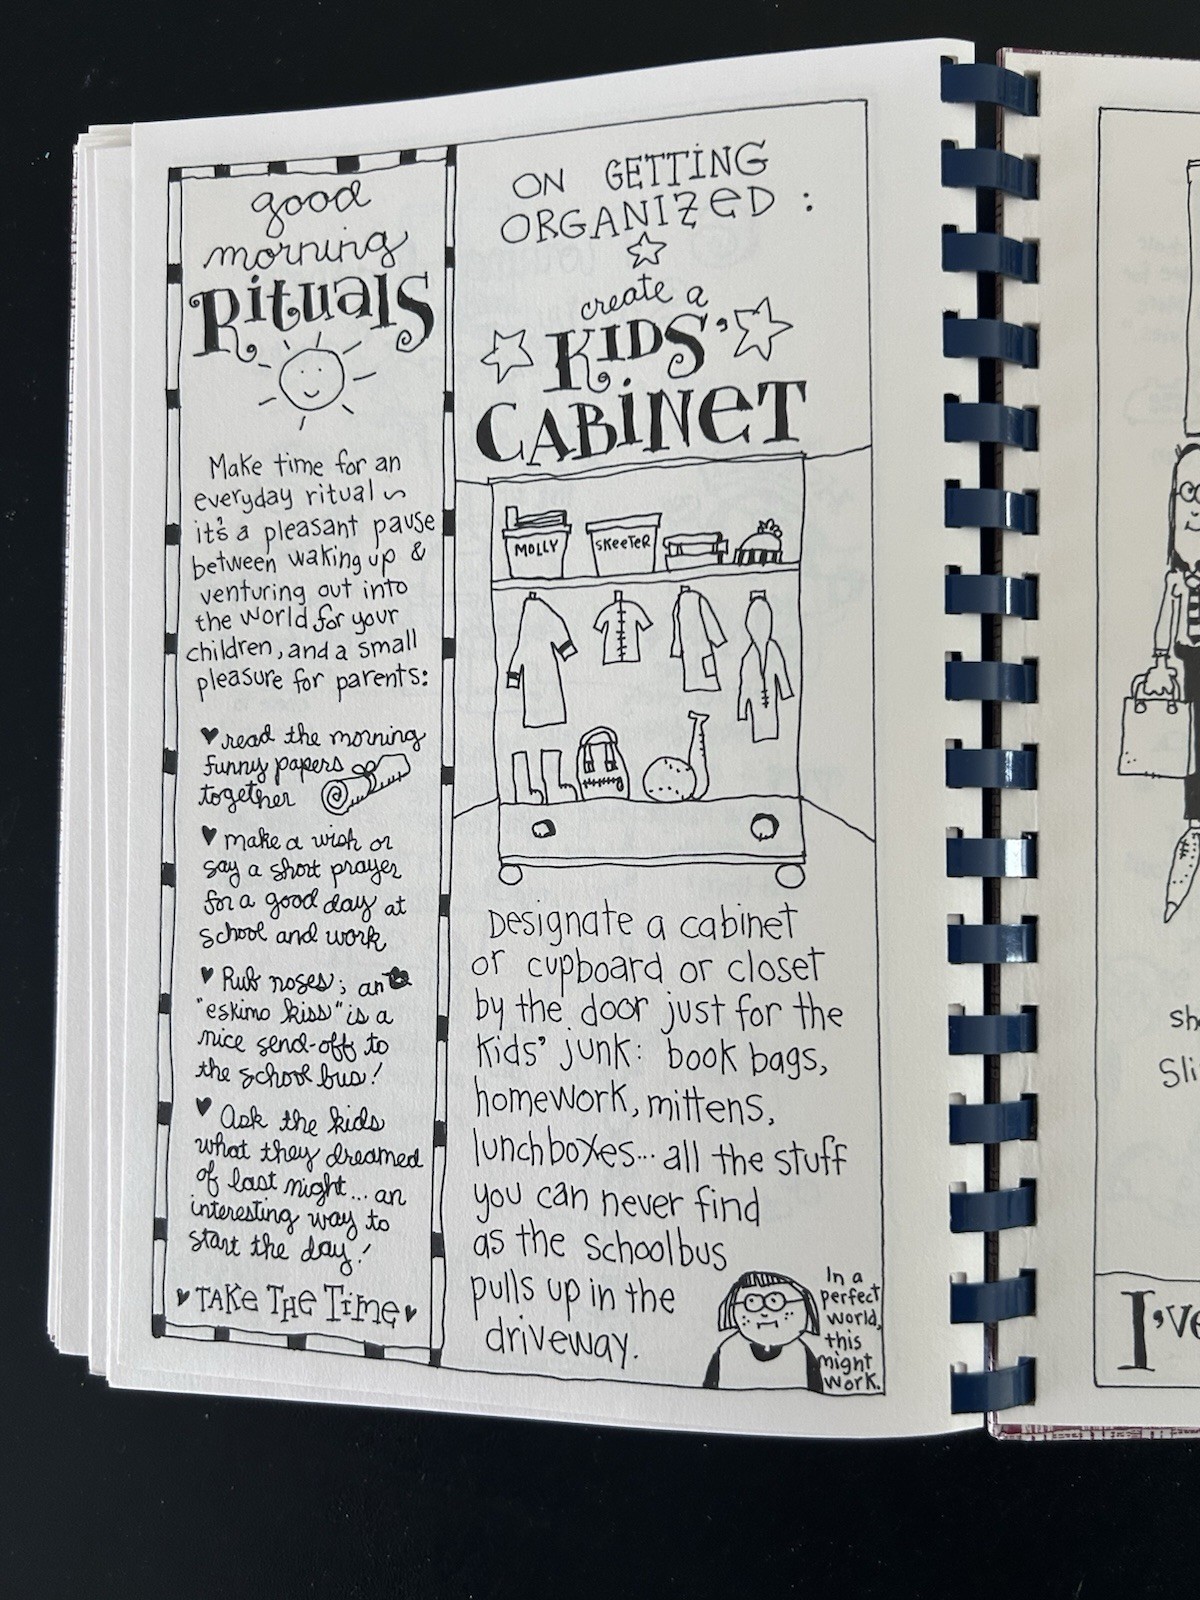 good
morning
Rituals
Make time for an
everyday ritual ~
it's a pleasant pause
between waking up &
venturing out into
the world for your
children, and a small
pleasure for parents:
♥ read the morning
funny papers
together
♥ make a wish or
say a short prayer
for a good day at
school and work
♥ Rub noses; an
"eskimo kiss" is a
nice send-off to
the school bus!
♥ Ask the kids
what they dreamed
of last night... an
interesting way to
start the day!
♥ TAKE THE TIME ♥
ON GETTING
ORGANIZED :
create a
KIDS'
CABINET
MOLLY
SKEETER
Designate a cabinet
or cupboard or closet
by the door just for the
kids' junk: book bags,
homework, mittens,
lunchboxes... all the stuff
you can never find
as the schoolbus
pulls up in the
driveway.
In a
perfect
world,
this
might
work.
Sli
I've